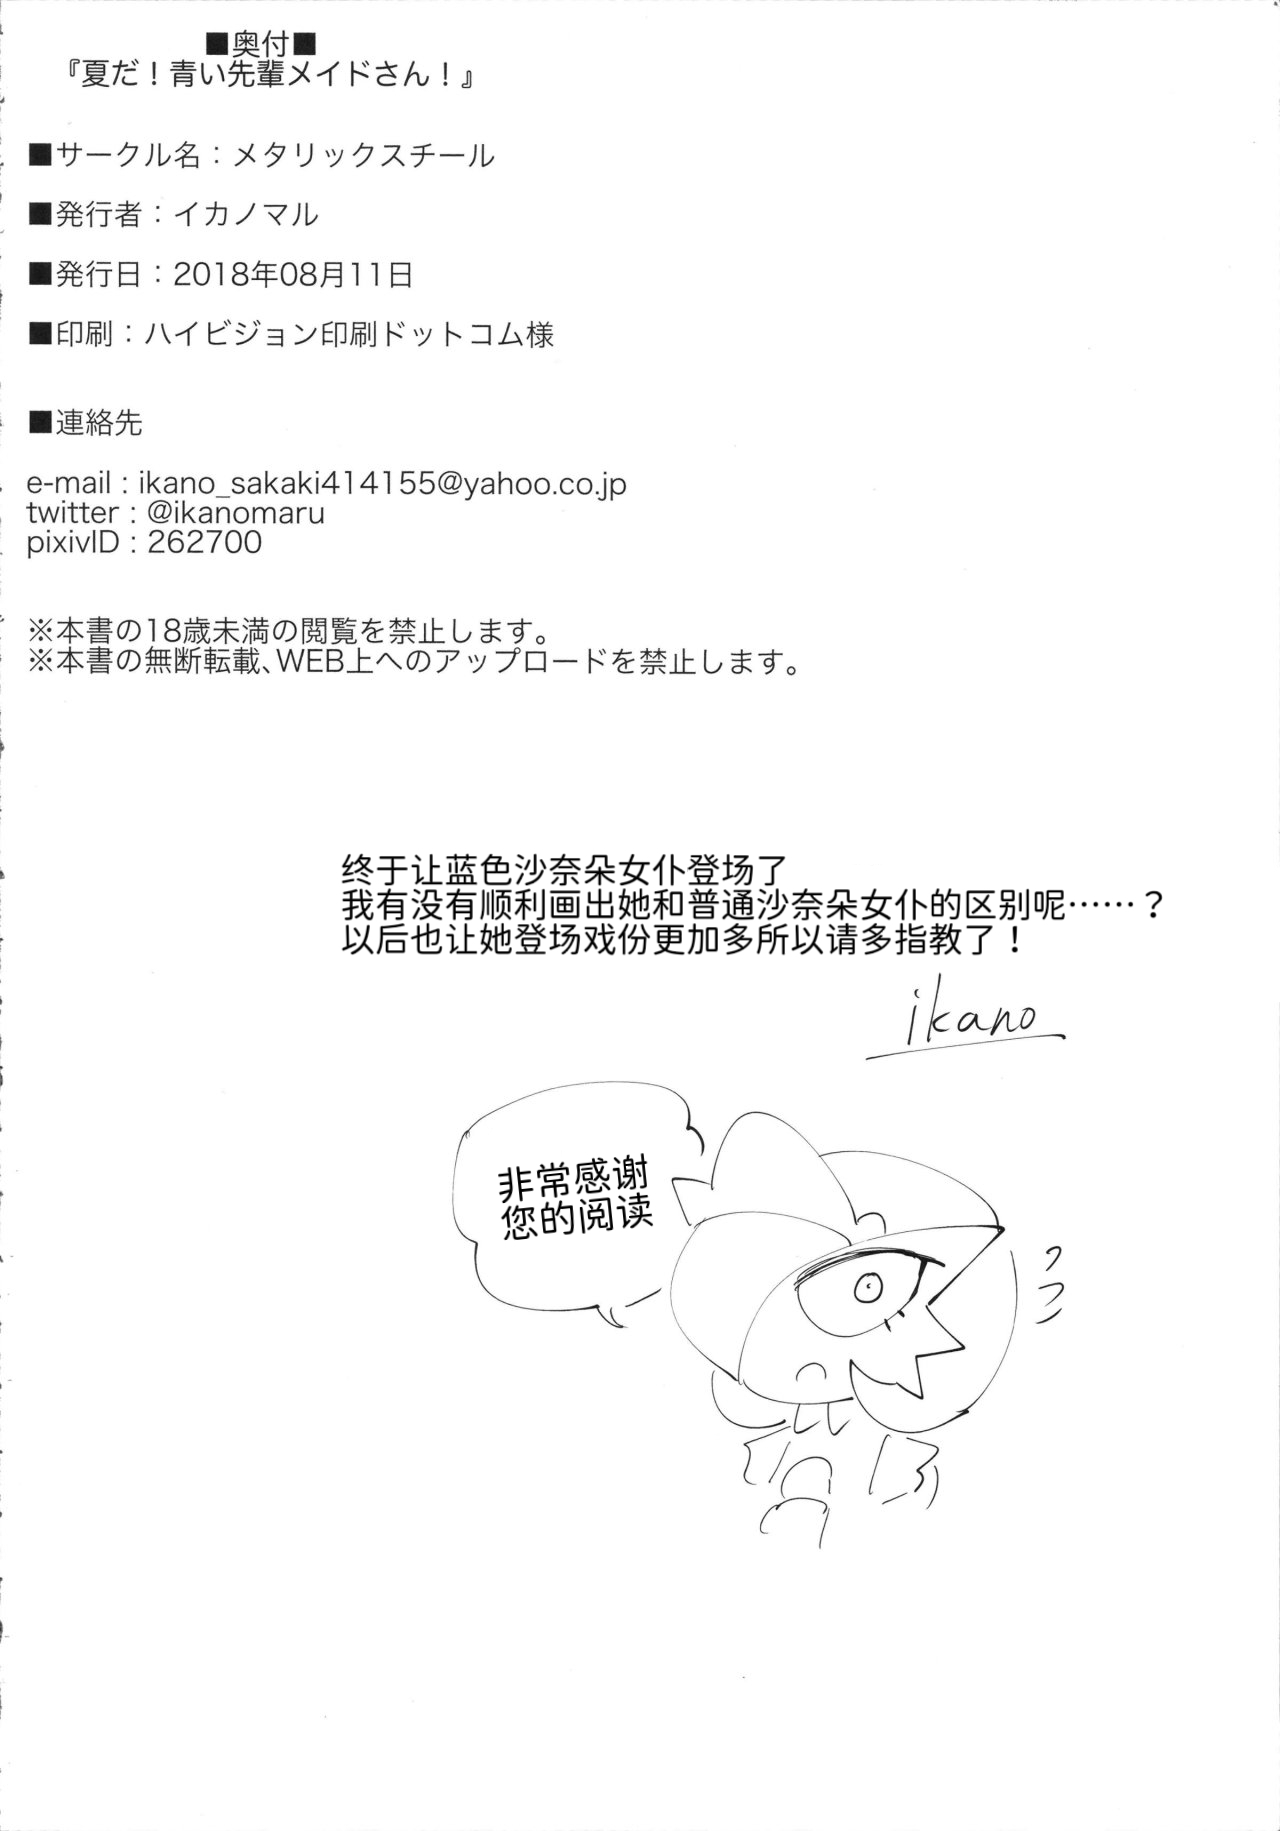 ■奥付■
『夏だ！青い先輩メイドさん！』
■サークル名：メタリックスチール
■発行者：イカノマル
■発行日：2018年08月11日
■印刷：ハイビジョン印刷ドットコム様
■連絡先
e-mail : ikano_sakaki414155@yahoo.co.jp
twitter : @ikanomaru
pixivID : 262700
※本書の18歳未満の閲覧を禁止します。
※本書の無断転載、WEB上へのアップロードを禁止します。
终于让蓝色沙奈朵女仆登场了
我有没有顺利画出她和普通沙奈朵女仆的区别呢……？
以后也让她登场戏份更加多所以请多指教了！
ikano
非常感谢
您的阅读